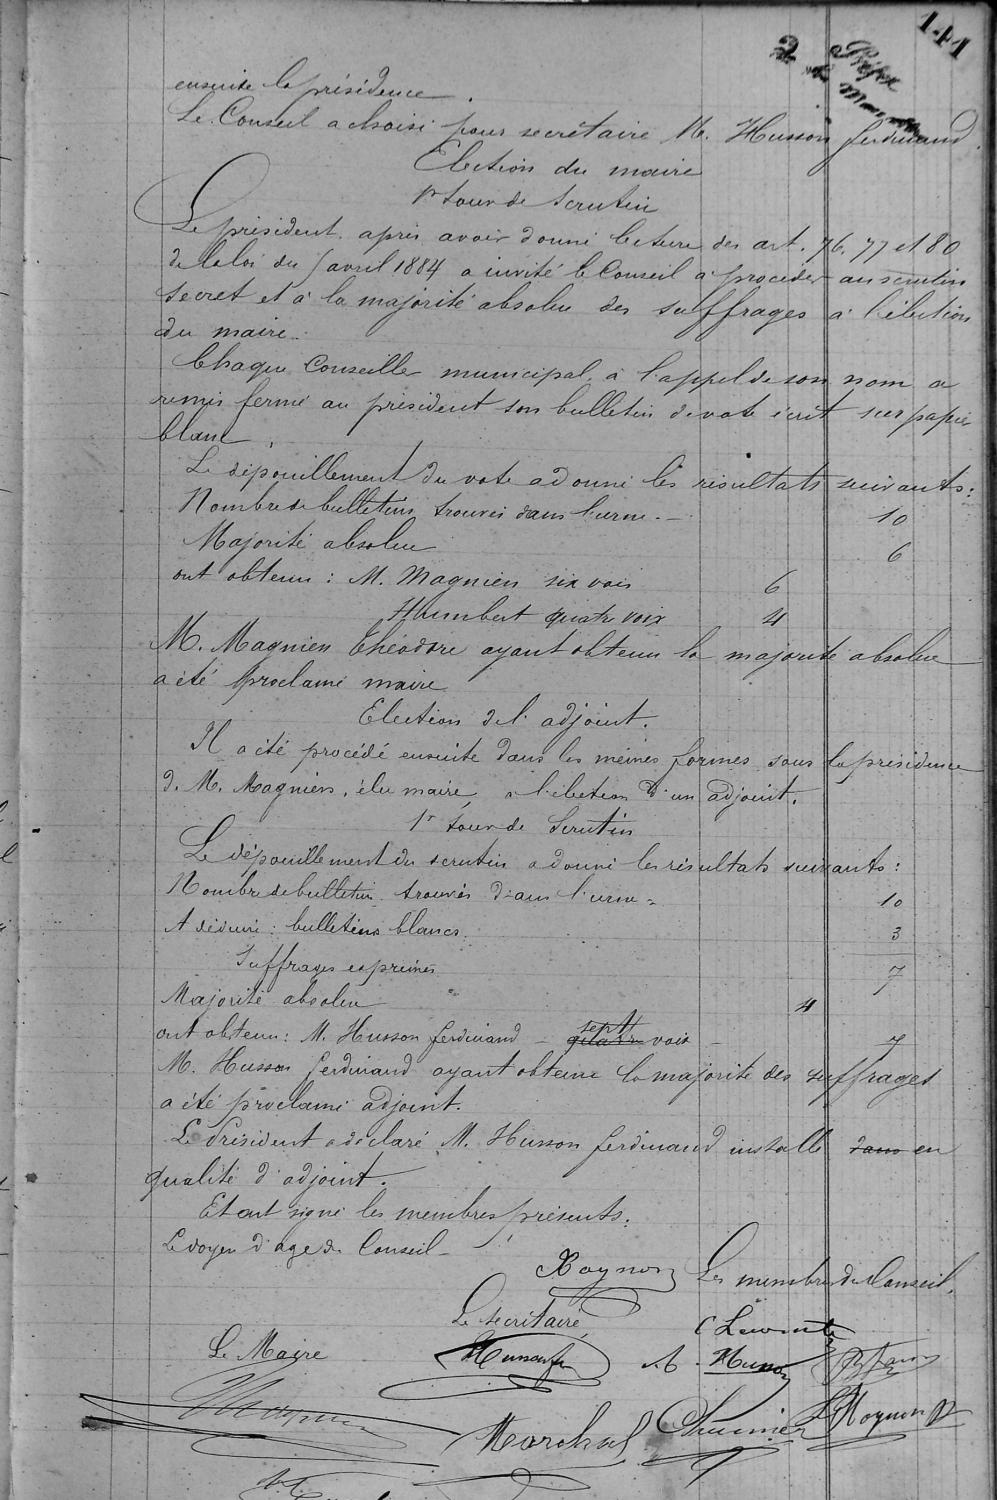 141
2 Préfex
ensuite la présidence.
Le Conseil a choisi pour secrétaire M. Husson ferdinand.
Election du maire
1r tour de Scrutin
Le président, après avoir donné lecture des art. 76. 77 et 80
de la loi du 5 avril 1884 a invité le Conseil à procéder au scrutin
secret et à la majorité absolue des suffrages à l'élection
du maire.
Chaque Conseiller municipal, à l'appel de son nom a
remis fermé au président son bulletin de vote écrit sur papier
blanc.
Le dépouillement du vote a donné les résultats suivants:
Nombre de bulletins trouvés dans l'urne. — 10
Majorité absolue 6
ont obtenu: M. Magnien six voix 6
Humbert quatre voix 4
M. Magnien Théodore ayant obtenu la majorité absolue
a été proclamé maire
Election de l'adjoint.
Il a été procédé ensuite dans les mêmes formes sous la présidence
de M. Magnien, élu maire, à l'élection d'un adjoint.
1r tour de Scrutin
Le dépouillement du scrutin a donné les résultats suivants:
Nombre de bulletins trouvés dans l'urne 10
A déduire: bulletins blancs. 3
Suffrages exprimés 7
Majorité absolue 4
ont obtenu: M. Husson ferdinand – quatre sept voix – 7
M. Husson ferdinand ayant obtenu la majorité des suffrages
a été proclamé adjoint.
Le Président a déclaré M. Husson ferdinand installé dans en
qualité d'adjoint.
Et ont signé les membres présents.
Le doyen d'age du Conseil –
Roynon Les membres du Conseil,
Le secrétaire
Le Maire
Husson
Magnien
Marchal